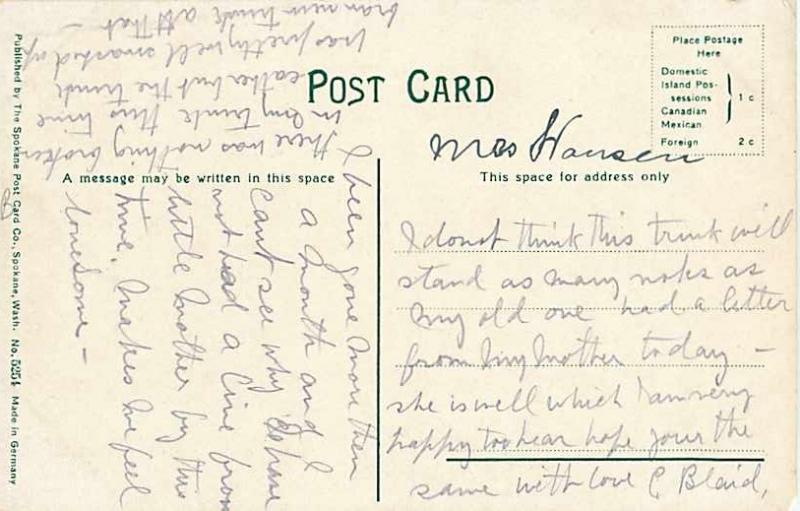 POST CARD
Place Postage
Here
Domestic
Island Pos-
sessions
Canadian
Mexican
1 c
Foreign 2 c
Mrs Hansen
A message may be written in this space
This space for address only
I been gone more then
a month and I
cant see why I have
not had a line from
little Mother by this
time. Makes me feel
lonesome -
there was nothing broken
in my trunk this time
eather but the trunk
was pretty well smashed up
bran new trunk at that -
I do not think this trunk will
stand as many nocks as
my old one had a letter
from my Mother today -
she is well which I am very
happy too hear hope your the
same with love C Blaid,
Published by The Spokane Post Card Co., Spokane, Wash. No. 5254 Made in Germany